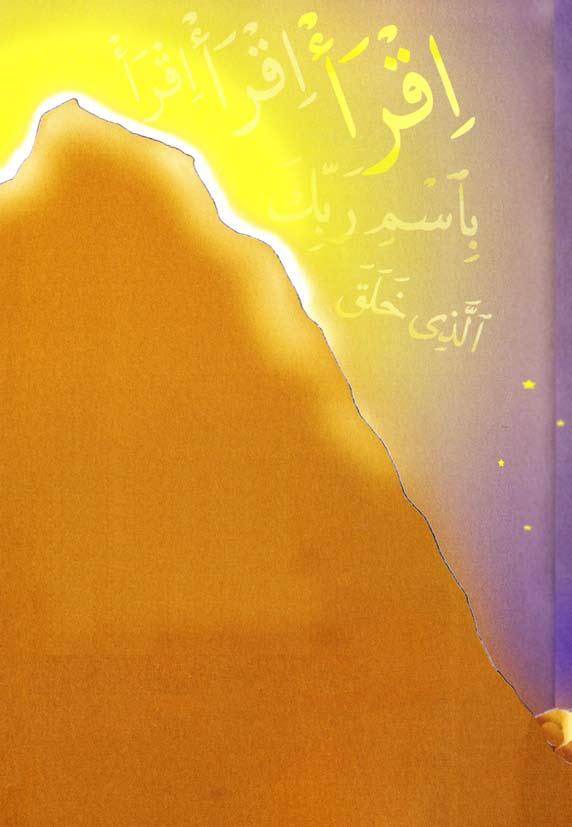 اِقْرَأْ اِقْرَأْ اِقْرَأْ
بِٱسْمِ رَبِّكَ
ٱلَّذِى خَلَقَ